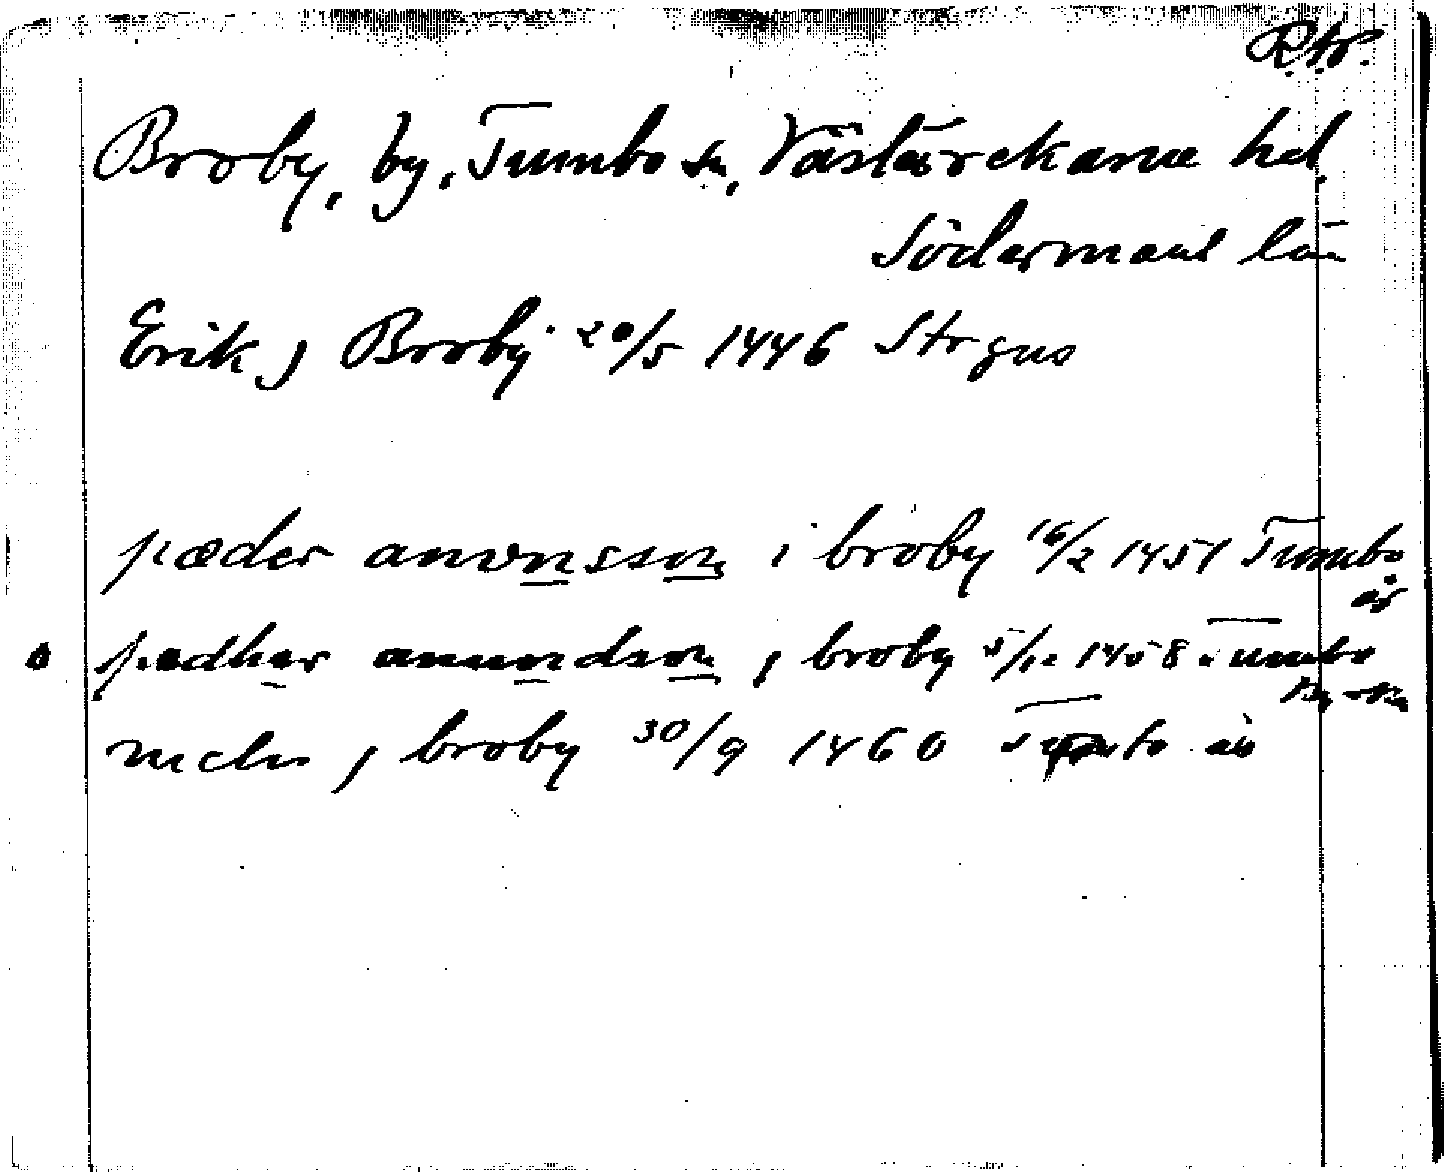 Broby, by, Tumbo sn, Västerrekarne hd,
Södermanl län
Erik j Broby 20/5 1446
pæder anvnsson i broby 16/2 1451 Tumbo
pædher anundson j broby 5/12 1458 Tumbo
j broby 30/9 1460 Tumbo